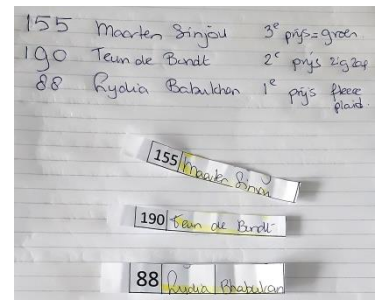 155 Maarten Sinjou 3e prijs = groen
190 Teun de Bondt 2e prijs zigzag
88 Lydia Babukhan 1e prijs fleece
plaid.
155 Maarten Sinjou
190 Teun de Bondt
88 Lydia Bhabukan